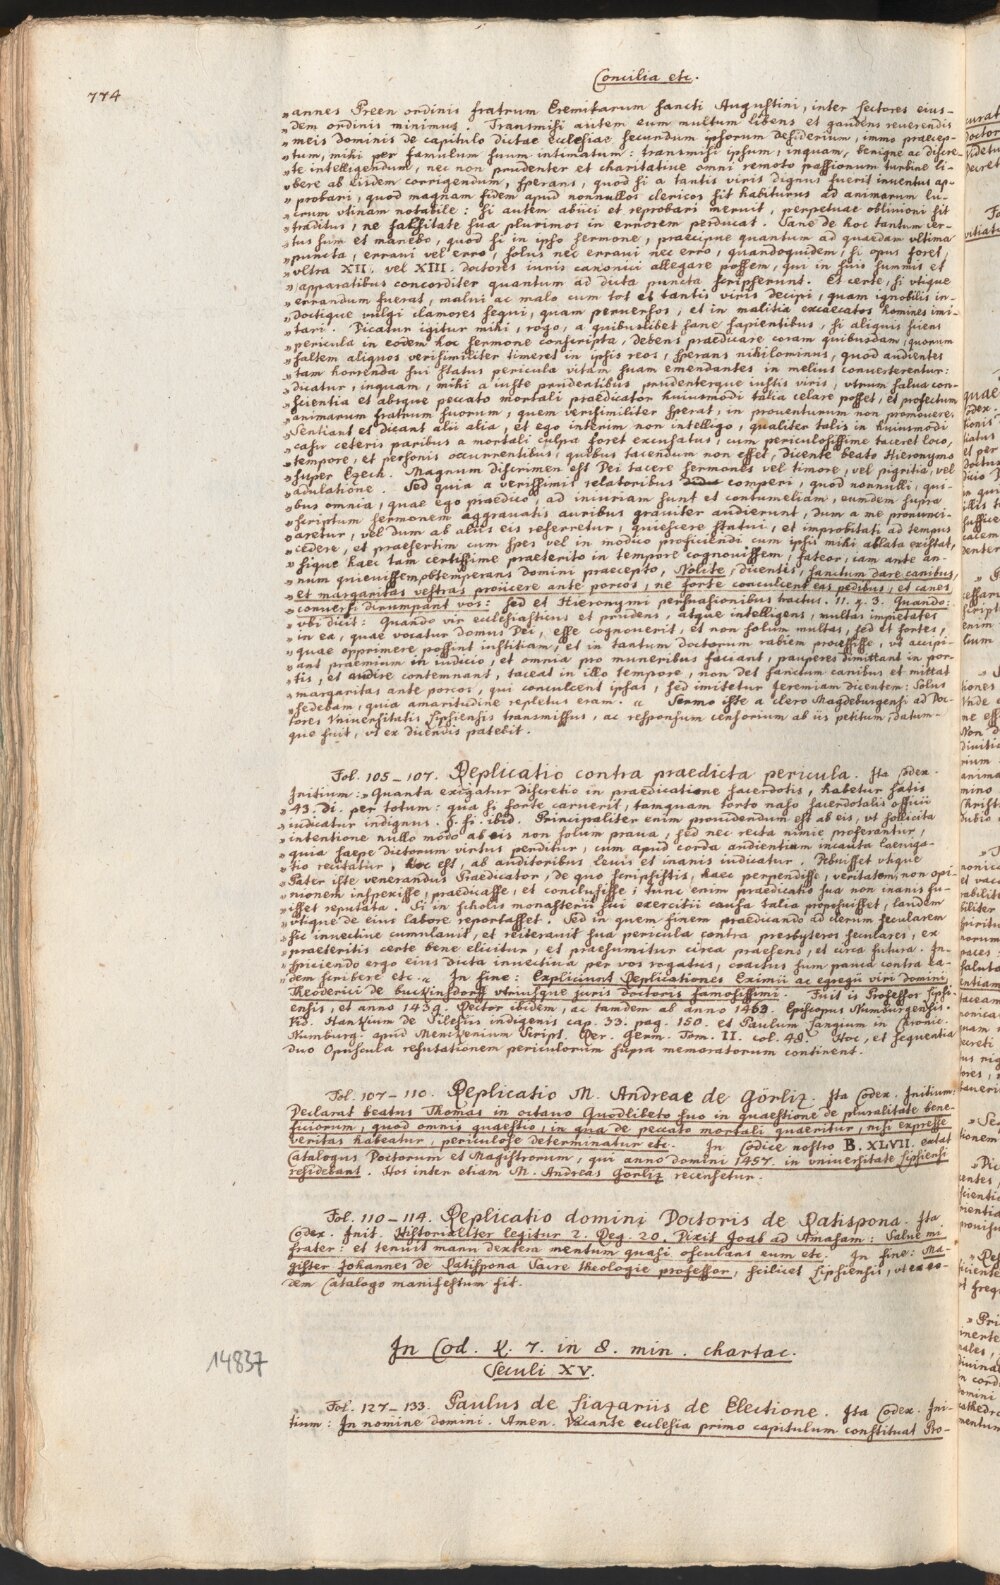 774
Concilia etc.
„annes Preen ordinis fratrum Eremitarum sancti Augustini, inter sectores eius-
„dem ordinis minimus. Transmisi autem eum multum libens et gaudens reverendis
„meis dominis de capitulo dictae ecclesiae secundum ipsorum desiderium, immo praecep-
„tum, mihi per famulum suum intimatum: transmisi ipsum, inquam, benigne ac discre-
„te intelligendum, nec non prudenter et charitative omni remoto passionum turbine li-
„bere ab eisdem corrigendum, sperans, quod si a tantis viris dignus fuerit inventus ap-
„probari, quod magnam fidem apud nonnullos clericos sit habiturus ad animarum lu-
„crum utinam notabile: si autem abiici et reprobari meruit, perpetuae oblivioni sit
„traditus, ne falsitate sua plurimos in errorem perducat. Sane de hoc tantum cer-
„tus sum et manebo, quod si in ipso sermone, praecipue quantum ad quaedam ultima
„puncta, erravi vel erro, solus nec erravi nec erro, quandoquidem, si opus foret,
„ultra XII. vel XIII. doctores iuris canonici allegare possem, qui in suis summis et
„apparatibus concorditer quantum ad dicta puncta scripserunt. Et certe, si utique
„errandum fuerat, malui ac malo cum tot et tantis viris decipi, quam ignobilis in-
„doctique vulgi clamores sequi, quam perversos, et in malitia excaecatos homines imi-
„tari. Dicatur igitur mihi, rogo, a quibuslibet sane sapientibus, si aliquis sciens
„pericula in eodem hoc sermone conscripta, debens praedicare coram quibusdam, quorum
„saltem aliquos verisimiliter timeret in ipsis reos, sperans nihilominus, quod audientes
„tam horrenda sui status pericula vitam suam emendantes in melius converterentur:
„dicatur, inquam, mihi a iuste prudentibus, prudenterque iustis viris, utrum salva con-
„scientia et absque peccato mortali praedicator huiusmodi talia celare posset, et profectum
„animarum fratrum suorum, quem verisimiliter sperat, in proventurum non promovere:
„Sentiant et dicant alii alia, et ego interim non intelligo, qualiter talis in huiusmodi
„casu ceteris paribus a mortali culpa foret excusatus, cum periculosissime taceret loco,
„tempore, et personis occurrentibus, quibus tacendum non esset, dicente beato Hieronymo
„super Ezech. Magnum discrimen est Dei tacere sermones vel timore, vel pigritia, vel
„adulatione. Sed quia a verissimis relatoribus comperi, quod nonnulli, qui-
„bus omnia, quae ego praedico, ad iniuriam sunt et contumeliam, eumdem supra
„scriptum sermonem aggravatis auribus graviter audierunt, dum a me pronunci-
„aretur, vel dum ab aliis eis referretur, quiescere statui, et improbitati ad tempus
„cedere, et praesertim cum spes vel in modico proficiendi cum ipsis mihi ablata existat,
„sique haec tam certissime praeterito in tempore cognovissem, fateor, iam ante an-
„num quievissem, obtemperans domini praecepto, Nolite, dicentis, sanctum dare canibus,
„et margaritas vestras proiicere ante porcos, ne forte conculcent eas pedibus, et canes
„conversi dirumpant vos: sed et Hieronymi persuasionibus tractus. 11. q. 3. Quando:
„ubi dicit: Quando vir ecclesiasticus et prudens, atque intelligens, multas impietates
„in ea, quae vocatur domus Dei, esse cognoverit, et non solum multas, sed et fortes,
„quae opprimere possint iustitiam, et in tantum doctorum rabiem processisse, ut accipi-
„ant praemium in iudicio, et omnia pro muneribus faciant, pauperes dimittant in por-
„tis, et audire contemnant, taceat in illo tempore, non det sanctum canibus et mittat
„margaritas ante porcos, qui conculcent ipsas, sed imitetur Jeremiam dicentem: Solus
„sedebam, quia amaritudine repletus eram. “ Sermo iste a clero Magdeburgensi ad Doc-
tores Universitatis Lipsiensis transmissus, ac responsum censorium ab iis petitum, datum-
que fuit, ut ex dicendis patebit.
Fol. 105–107. Replicatio contra praedicta pericula. Ita Codex.
Initium: „Quanta exigatur discretio in praedicatione sacerdotis, habetur satis
„43. di. per totum: qua si forte caruerit, tamquam torto naso sacerdotalis officii
„iudicatur indignus. §. si. ibid. Principaliter enim providendum est ab eis, ut sollicita
„intentione nullo modo ab eis non solum prava, sed nec recta nimie proferantur,
„quia saepe dictorum virtus perditur, cum apud corda audientium incauta loeniga-
„tio recitatur, hoc est, ab auditoribus levis et inanis iudicatur. Debuisset utique
„Pater iste venerandus Praedicator, de quo scripsistis, haec perpendisse, veritatem, non opi-
„nionem inspexisse, praedicasse, et conclusisse; tunc enim praedicatio sua non inanis fu-
„isset reputata. Si in scholis monasterii sui exercitii causa talia proposuisset, laudem
„utique de eius labore reportasset. Sed in quem finem praedicando ad clerum secularem
„sic invective cumulavit, et reiteravit sua pericula contra presbyteros seculares, ex
„praeteritis certe bene elicitur, et praesumitur circa praesens, et circa futura. In-
„spiciendo ergo eius dicta invectiva per vos rogatus, coactus sum pauca contra ea-
„dem scribere etc.“ In fine: Expliciunt Replicationes Eximii ac egregii viri domini
Theoderici de buckinsdorff utriusque juris doctoris famosissimi. Fuit is Professor Lipsi-
ensis, et anno 1439. Rector ibidem, ac tandem ab anno 1463. Episcopus Numburgensis.
Vid. Hankium de Silesiis indigenis cap. 33. pag. 150. et Paulum Langium in Chronic.
Numburg. apud Menckenium Script. Rer. Germ. Tom. II. col. 48. Hoc, et sequentia
duo Opuscula refutationem periculorum supra memoratorum continent.
Fol. 107–110. Replicatio M. Andreae de Görliz. Ita Codex. Initium:
Declarat beatus Thomas in octavo Quodlibeto suo in quaestione de pluralitate bene-
ficiorum, quod omnis quaestio, in qua de peccato mortali quaeritur, nisi expresse
veritas habeatur, periculose determinatur etc. In Codice nostro B. XLVII. extat
Catalogus Doctorum et Magistrorum, qui anno domini 1457. in universitate Lipsiensi
residebant. Hos inter etiam M. Andreas Gorliz recensetur.
Fol. 110–114. Replicatio domini Doctoris de Ratispona. Ita
Codex. Init. Historialiter legitur 2. Reg. 20. Dixit Joab ad Amasam: Salve mi
frater: et tenuit manu dextera mentum quasi osculans eum etc. In fine: Ma-
gister Johannes de Ratispona Sacre theologie professor, scilicet Lipsiensis, ut ex eo-
dem Catalogo manifestum fit.
14837
In Cod. K. 7. in 8. min. chartac.
Seculi XV.
Fol. 127–133. Paulus de Liazariis de Electione. Ita Codex. Ini-
tium: In nomine domini. Amen. Vacante ecclesia primo capitulum constituat Pro-